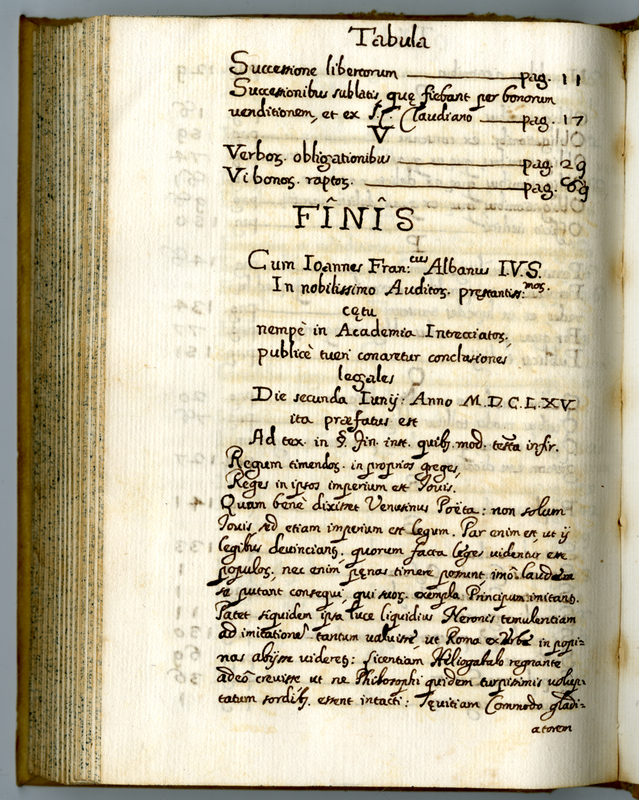 Tabula
Successione libertorum pag. 11
Successionibus sublatis, quę fiebant per bonorum
venditionem, et ex S.C. Claudiano pag. 17
V
Verbor. obligationibus pag. 29
Vi bonor. raptor. pag. 69
FÎNÎS
Cum Ioannes Fran:cus Albanus I.V.S.
In nobilissimo Auditor. pręstantiss:mor.
cętu
nempè in Academia Intrecciator.
publicè tueri conaretur conclusiones
legales
Die secunda Iunij: Anno M.D.C.LXV
ita præfatus est
Ad tex. in §. fin. inst. quib. mod. testa infir.
Regum timendor. in proprios greges,
Reges in ipsos imperium est Iouis.
Quam benè dixisset Venusinus Poëta: non solum
Iouis sed etiam imperium est legum. Par enim est, ut ij
legibus deuinciant. quorum facta leges uidentur esse
populor. nec enim pęnas timere possunt, imò laudem
se putant consequi, qui suor. exempla Principum imitant.
Patet siquidem ipsa luce liquidius Neronis temulentiam
ad imitationem tantum ualuisse, ut Roma ex Vrbe in popi-
nas abijsse videret: licentiam Heliogabalo regnante
adeò creuisse ut ne Philosophi quidem turpissimis uolup-
tatum sordib. essent intacti: sęuitiam Commodo gladi-
atorem